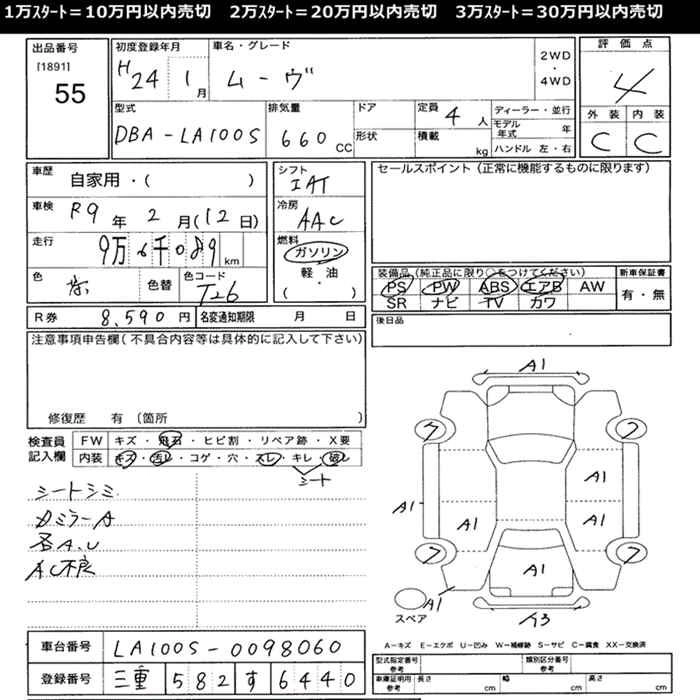 1万スタート＝10万円以内売切　2万スタート＝20万円以内売切　3万スタート＝30万円以内売切
出品番号
[1891]
55
初度登録年月
H24 1月
車名・グレード
ムーヴ
2WD
・
4WD
評価点
4
外装 内装
C C
型式
DBA-LA100S
排気量
660 CC
ドア
形状
定員 4 人
積載 kg
ディーラー・並行
モデル年式 年
ハンドル 左・右
車歴
自家用・( )
車検 R9年 2月(12日)
走行 9万6千089 km
色
色替
色コード
T26
シフト
IAT
冷房
AAC
燃料
ガソリン
軽油
( )
セールスポイント（正常に機能するものに限ります）
装備品（純正品に限り○をつけてください）
PS PW ABS エアB AW
SR ナビ TV カワ
新車保証書
有・無
R券 8,590 円
名変通知期限 月 日
後日品
注意事項申告欄（不具合内容等は具体的に記入して下さい）
修復歴 有（箇所 ）
検査員記入欄
FW キズ・飛石・ヒビ割・リペア跡・X要
内装 キズ・汚レ・コゲ・穴・スレ・キレ・破レ
シート
シートシミ
カミラーA
各A.U
AC不良
A1
フ フ
A1
A1 A1 A1
フ フ
A1
スペア
A1
A3
A－キズ E－エクボ U－凹み W－補修跡 S－サビ C－腐食 XX－交換済
車台番号 LA100S-0098060
登録番号 三重 582 す 6440
型式指定番号 参考
類別区分番号 参考
車庫証明用 参考
長さ cm
幅 cm
高さ cm